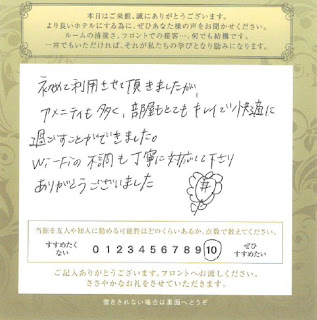 本日はご来館、誠にありがとうございます。
より良いホテルにする為に、ぜひあなた様の声をお聞かせください。
ルームの清潔さ、フロントでの接客…、何でも結構です。
一言でもいただければ、それが私たちの学びとなり励みになります。
初めて利用させて頂きましたが、
アメニティも多く、部屋もとてもキレイで快適に
過ごすことができました。
Wi-Fiの不調も丁寧に対応して下さり
ありがとうございました
当館を友人や知人に勧める可能性はどのくらいあるか、点数で教えてください。
すすめたくない 0 1 2 3 4 5 6 7 8 9 10 ぜひすすめたい
ご記入ありがとうございます。フロントへお渡しください。
ささやかなお礼をさせていただきます。
書ききれない場合は裏面へどうぞ